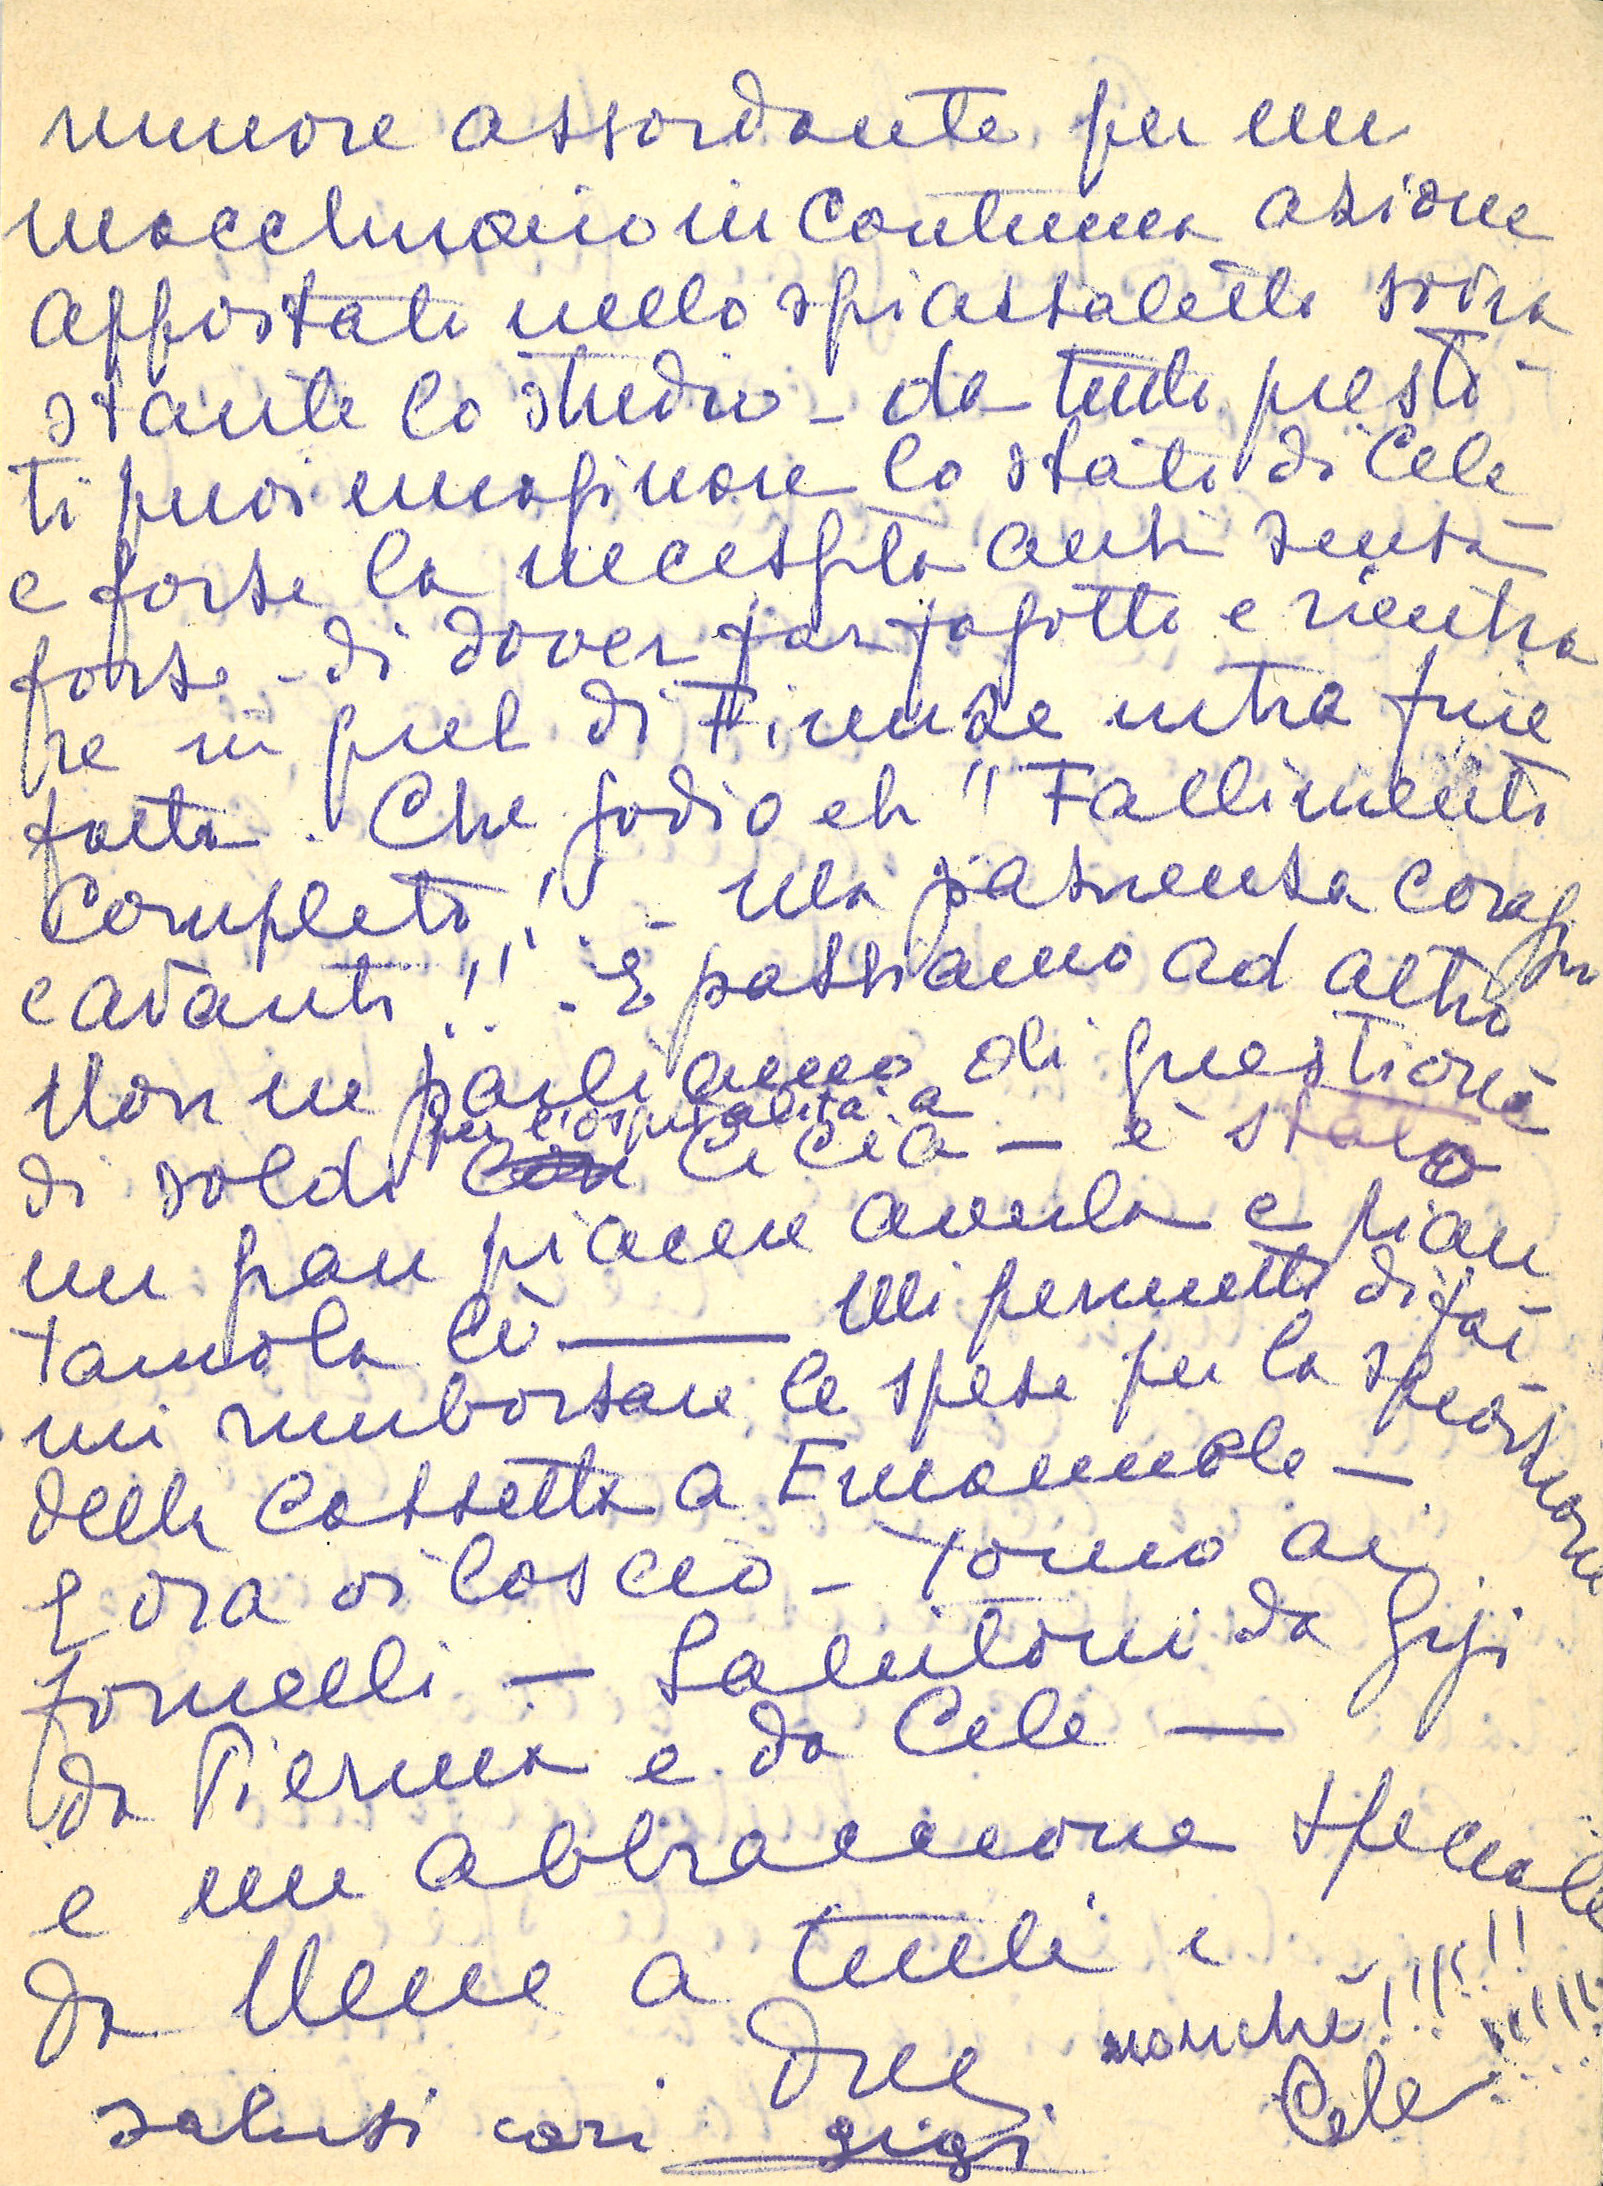 rumore assordante per un
macchinario in continua azione
appostato nello spiazzaletto sovra
stante lo studio - da tutto questo
ti puoi imaginare lo stato di Cele
e forse la necessità anzi senza
forse - di dover far fagotto e rientra
re in quel di Firenze intra fine
fatta. Che godio eh!! Fallimento
completo!!! - Ma pasienza coraggio
e avanti!!! - E passiamo ad altro
Non ne parliamo di questione
per l'ospitalità a
di soldi con Cicia - è stato
un gran piacere averla e pian
tamola lì — Mi permetto di far
mi rimborsare le spese per la spedizione
della cassetta a Emanuele -
E ora vi lascio - Torno ai
fornelli - Salutoni da Gigi
da Pierina e da Cele -
e un abbraccione speciale
da Nene a tutti e
due nonchè!!!!!!
Cele!!!!!
saluti cari gigi